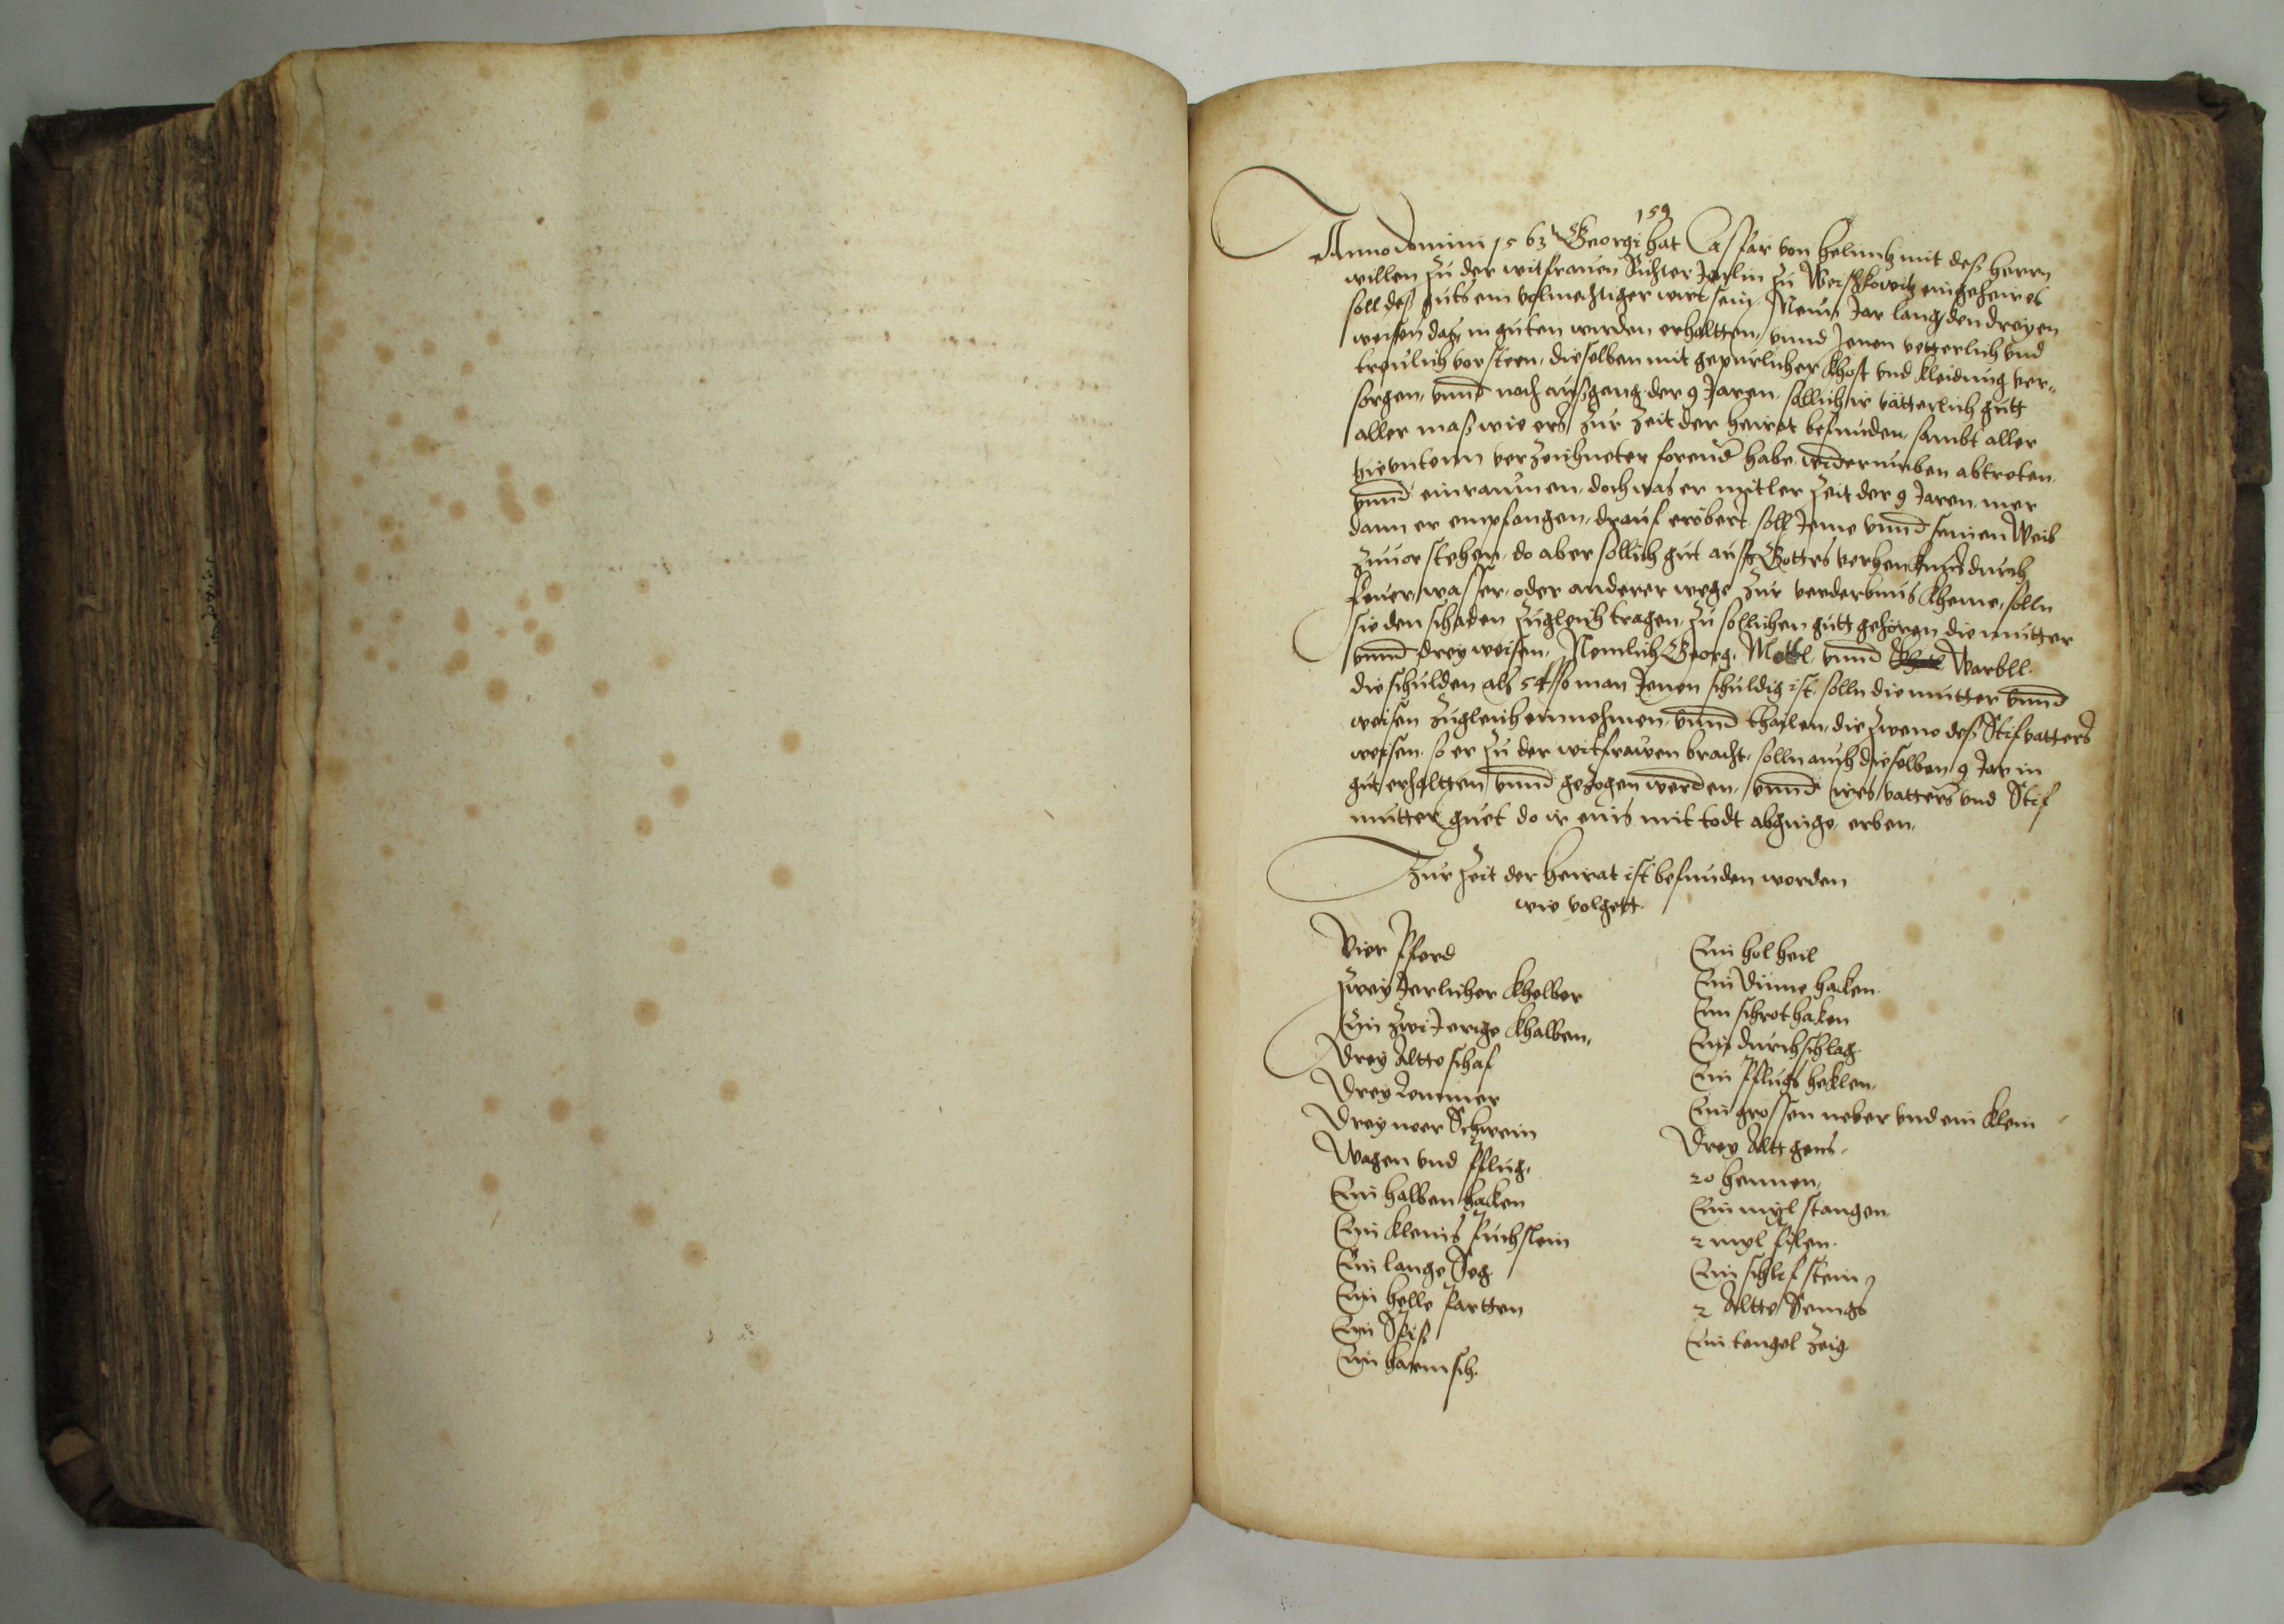 159
Anno Domini 1563 Georgi hat Casspar von helnitz mit deß herrn
willen zu der witfrauen Richter Jenlin zu Werßkowitz eingeheirot
soll deß guts ein volmechtiger wirt sein. Neun Jar lang den dreyen
weisen daß in guten wirden erhaltten, vnnd Jenen vetterlich vnd
treulich vorsteen, dieselben mit gepurlicher khost vnd kleidung ver„
sorgen, vnnd noch außgeng der 9 Jaren, sollich ir vätterlich gutt
aller maß wie ers zur Zeit der heirat befunden, sambt aller
hievntenn verzeichneter farend habe, widerumben abtreten,
vnnd einraumen, doch was er mitler Zeit der 9 Jaren, mer
dann er empfangen, drauf erobert soll Jeme vnnd seinen Weib
zuuor stehen, do aber sollich gut auß Gottes verhencknus durch
feuer, wasser, oder anderer wege zur verderbnus kheme, solln
sie den schaden zugleich tragen, zu sollichen gutt gehören die mutter
vnnd drey weisen, Nemlich Georg, Mottl, vnnd Warbll.
die schulden alß 54 ß so man Jenen schuldig ist, solln die mutter vnnd
weisen zugleich einnehmen, vnnd thailen, die zweno deß Stifvatters
weisen, so er zu der witfrawen bracht, solln auch dieselben 9 Jar in
gut erhaltten vnnd gezogen werden, vnnd ires vatters vnd Stif
mutter guet do ir eins mit todt abginge, erben,
Zur Zeit der heirat ist befunden worden
wie volgett
Vier Pferd
Zwey Jerlicher khelber
Ein zwi Jerige khalben,
Drey Altte schaf
Drey Lemmer
Drey neer Schwein
Wagen vnd Pflug,
Ein halben hacken
Ein kleins Puchslein
Ein lange Seg
Ein helle partten
Ein Spiß
Ein harnisch.
Ein hol heil
Ein Dinne hacken
Ein schrothaken
Ein durchschlag
Ein Pflugs hecklen,
Ein grossen neber vnd ein klein
Drey Altt gens,
20 hennen,
Ein myl stangen
2 myl pilen
Ein schlifstein
2 Altte Senngs
Ein tengel zeig